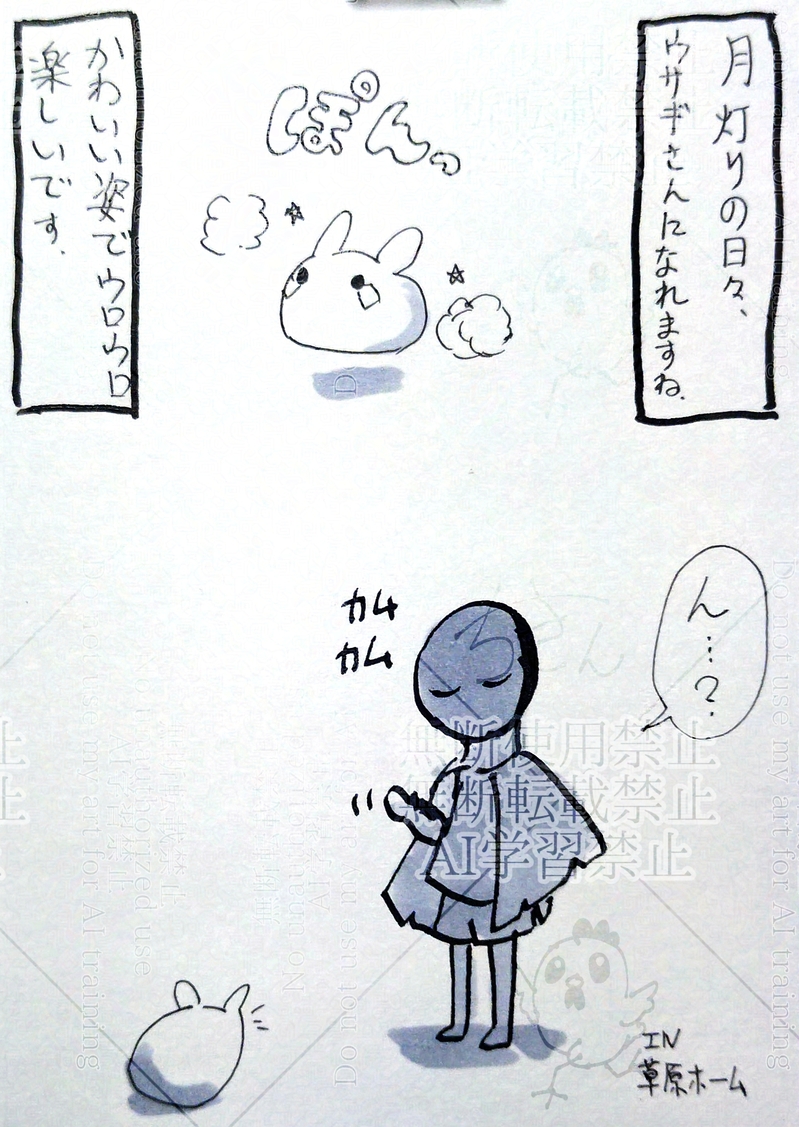 月灯りの日々、
ウサギさんになれますね.
ぽんっ
かわいい姿でウロウロ
楽しいです.
ん…?
カム
カム
無断使用禁止
無断転載禁止
AI学習禁止
Do not use my art for AI training
IN
草原ホーム